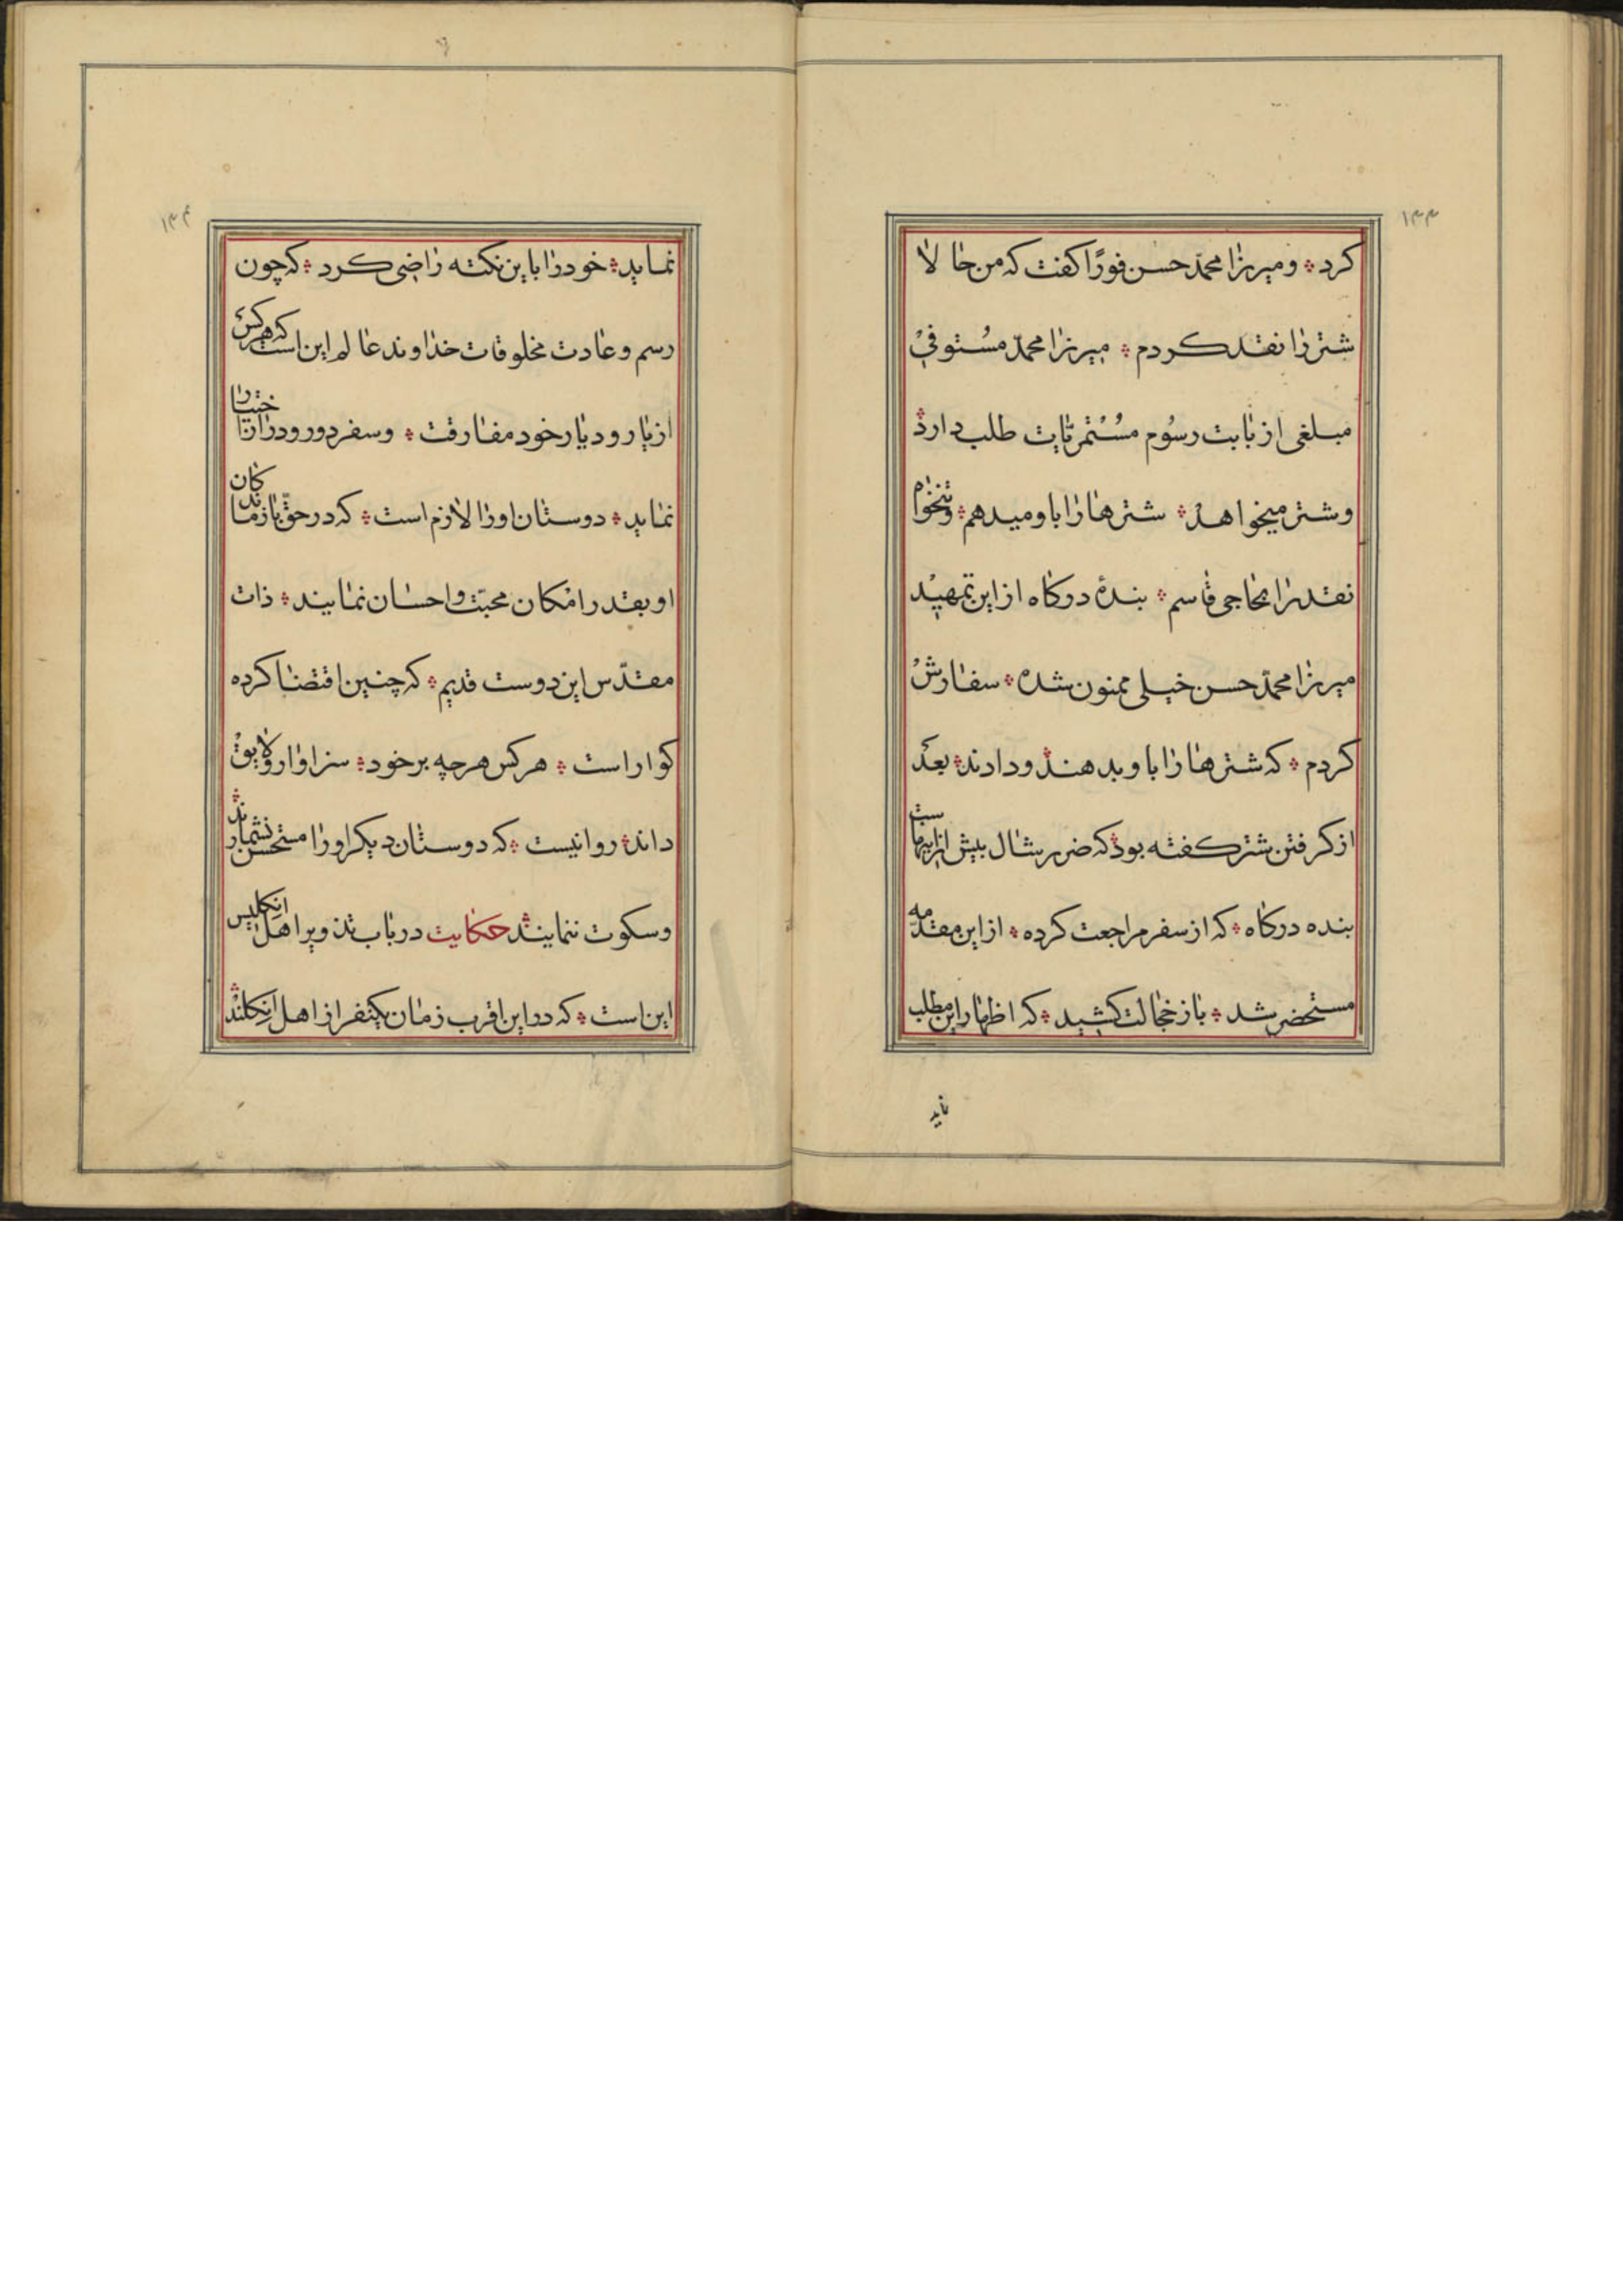 ۱۳۳
کرد ؞ و میرزا محمّد حسن فورًا کفت که من حالا
شتر را نقد کردم ؞ میرزا محمّد مُستوفی
مبلغی از بابت رسُوم مسُتمریّات طلب دارد ؞
و شتر میخواهد ؞ شترها را باو میدهم ؞ و تنخواه
نقد را بحاجی قاسم ؞ بندهٔ درکاه از این تمهید
میرزا محمّد حسن خیلی ممنون شده ؞ سفارش
کردم ؞ که شترها را باو بدهند و دادند ؞ بعد
از کرفتن شتر کفته بود که ضرر شال بیش از اینهاست
بنده درکاه ؞ که از سفر مراجعت کرده ؞ از این مقدّمه
مستحضر شد ؞ باز خجالت کشید ؞ که اظهار این مطلب
نماید
۱۳۴
نماید ؞ خود را باین نکته راضی کرد ؞ که چون
رسم و عادت مخلوقات خداوند عالم این است که هر کس
از یار و دیار خود مفارقت ؞ و سفر دور و دراز اختیار
نماید ؞ دوستان او را لازم است ؞ که در حقّ بازماندکان
او بقدر امکان محبّت و احسان نمایند ؞ ذات
مقدّس این دوست قدیم ؞ که چنین اقتضا کرده
کوارا است ؞ هر کس هر چه بر خود ؞ سزاوار و لایق
داند ؞ روا نیست ؞ که دوستان دیکر او را مستحسن نشمارند ؞
و سکوت ننمایند ؞ حکایت در باب تذویر اهل انکلیس
این است ؞ که در این اقرب زمان یکنفر از اهل انکلند ؞